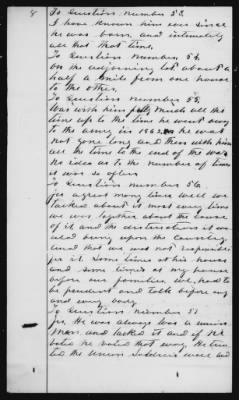 8 To Question number 53.
I have known him ever since
he was born and intimately
all that time,
To Question number 54.
on the adjoining lot about a
half a mile from one house
to the other,
To Question number 55
Was with him much all the
time up to the time he went away
to the army in 1862 he was
not gone long and then with him
all the time to the end of the war
No idea as to the number of times
it was so often
To Question number 56.
yes a great many times well we
talked about it most every time
we was together about the cause
of it and the distruction it was
upon the Country
and that we was not responsible
for it. Some times at his house
and some times at my house
before our families we had to
be prudent and talk before any
and every body.
To Question number 57
yes, He was always was a union
man and talked it and if he
voted he voted that way. He
the Union Soldiers well and